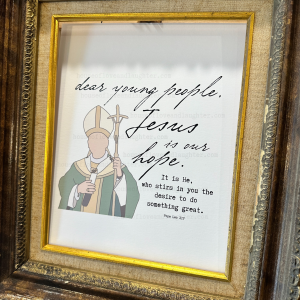 dear young people,
Jesus
is our
hope.
It is He,
who stirs in you the
desire to do
something great.
Pope Leo XIV